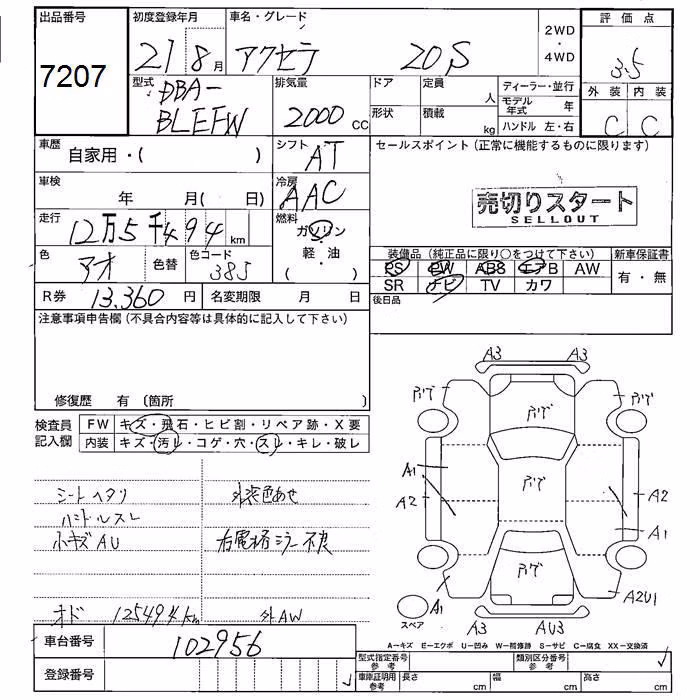 出品番号 7207
初度登録年月 21 8月
車名・グレード アクセラ 20S
2WD・4WD
評価点 3.5
外装 C 内装 C
型式 DBA-BLEFW
排気量 2000cc
ドア 定員 人
形状 積載 kg
ディーラー・並行
モデル年式 年
ハンドル 左・右
車歴 自家用・( )
シフト AT
セールスポイント(正常に機能するものに限ります)
売切りスタート
SELLOUT
車検 年 月( 日)
冷房 AAC
走行 12万5千494km
燃料 ガソリン 軽・油 ( )
色 アオ 色替 色コード 38J
装備品(純正品に限り○をつけて下さい) 新車保証書
PS PW ABS エアB AW 有・無
SR ナビ TV カワ
後日品
R券 13,360円 名変期限 月 日
注意事項申告欄(不具合内容等は具体的に記入して下さい)
修復歴 有 〔箇所
検査員記入欄
FW キズ・飛石・ヒビ割・リペア跡・X要
内装 キズ・汚レ・コゲ・穴・スレ・キレ・破レ
シートヘタリ 外装色あせ
ハンドルスレ
小キズAU 右電格ミラー不良
オド 125494km 外AW
車台番号 102956
登録番号
A3 A3
アゲ アゲ アゲ
A1 アゲ
A2 A2
A1
アゲ
A1 A2U1
スペア A3 AU3
A−キズ E−エクボ U−凹み W−補修跡 S−サビ C−腐食 XX−交換済
型式指定番号 参考 類別区分番号 参考
車庫証明用 参考 長さ cm 幅 cm 高さ cm